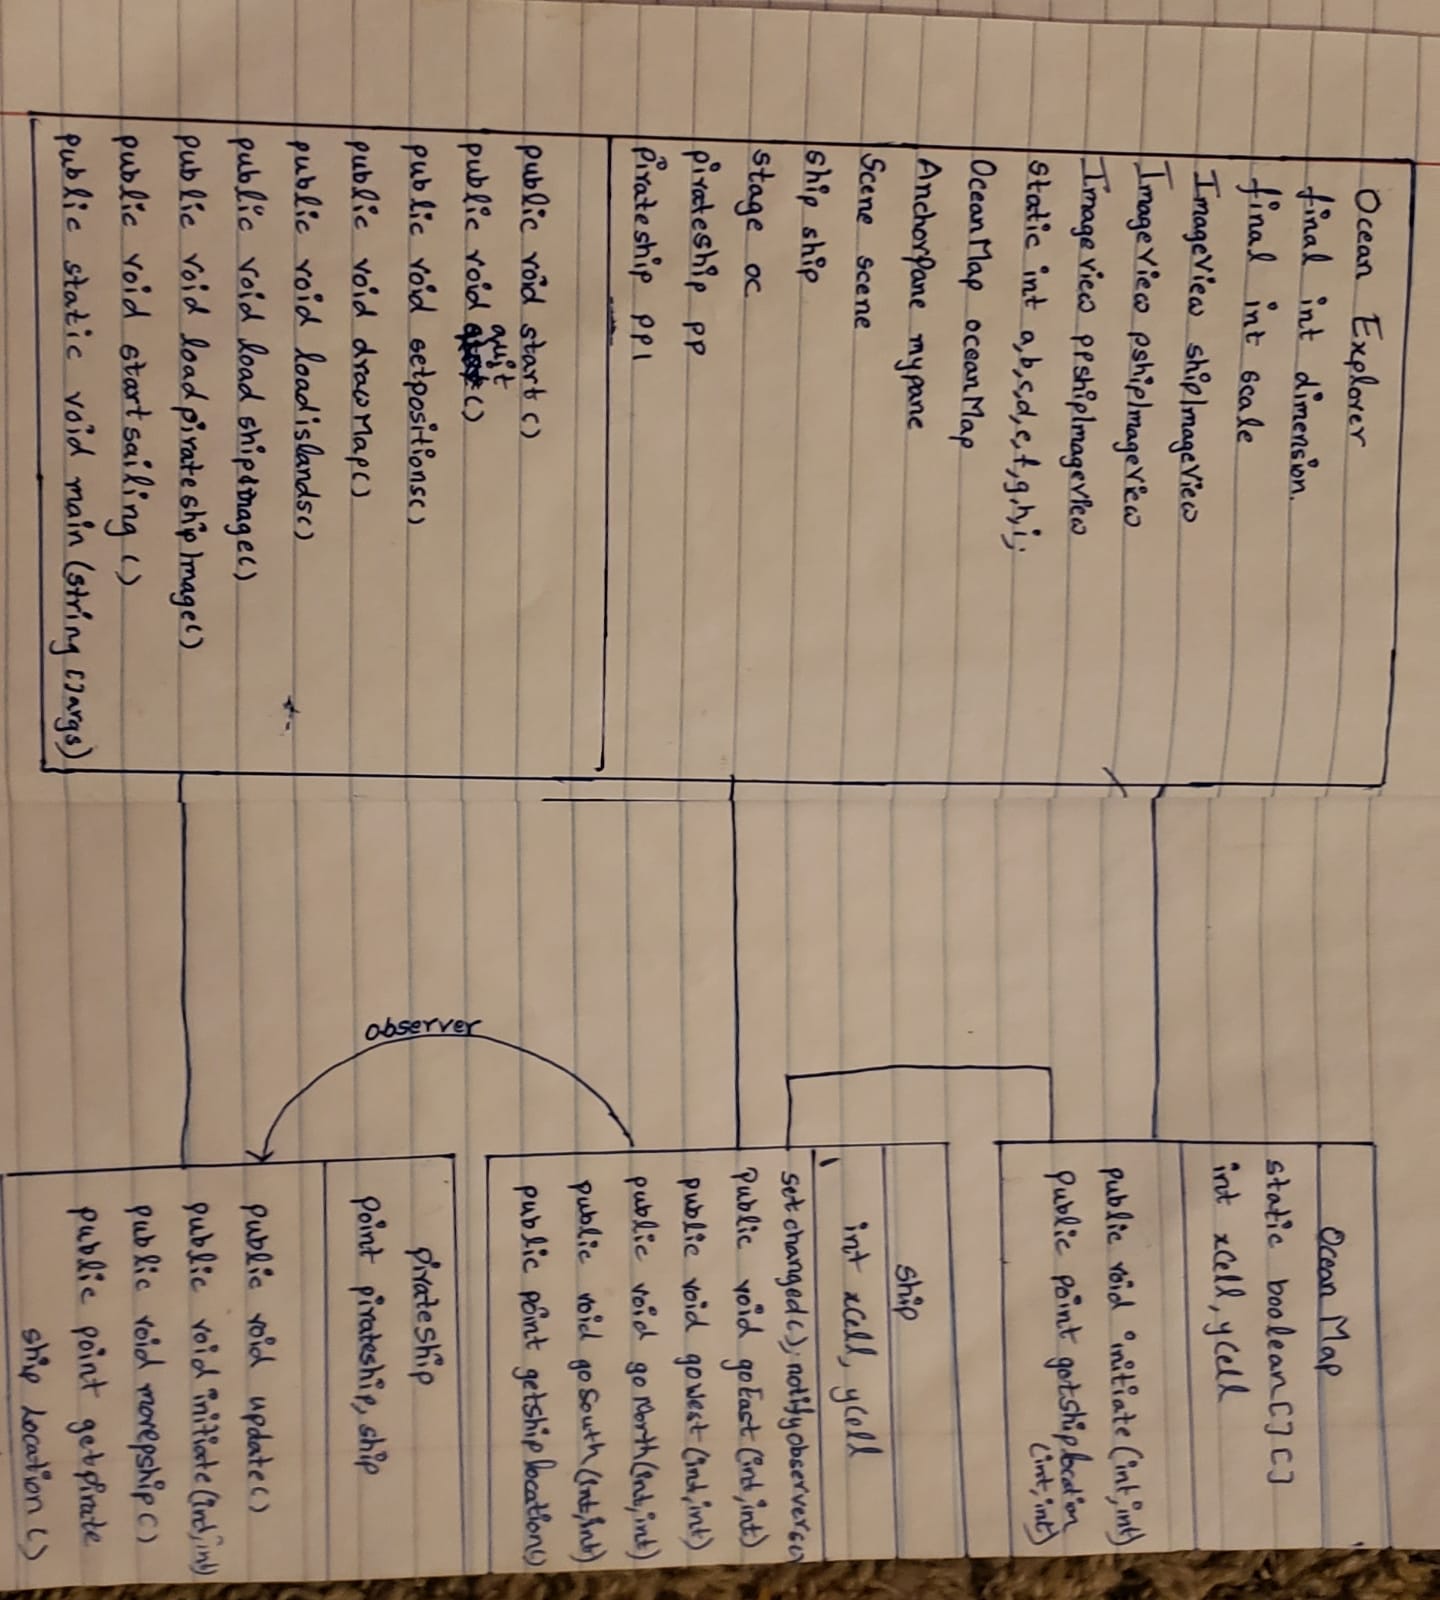 Ocean Explorer
final int dimension.
final int scale
ImageView shipImageView
ImageView pshipImageView
ImageView ppshipImageView
static int a,b,c,d,e,f,g,h,i;
OceanMap oceanMap
AnchorPane mypane
Scene scene
ship ship
stage oc
pirateship pp
pirateship pp1
public void start()
public void quit()
public void setpositions()
public void drawMap()
public void loadislands()
public void load shipimage()
public void loadpirateshipImage()
public void startsailing()
public static void main (string []args)
observer
Ocean Map
static boolean[][]
int xCell, yCell
public void initiate(int,int)
public point getshiplocation
(int,int)
ship
int xCell, yCell
setchanged(); notifyobservers()
public void goEast(int,int)
public void gowest(int,int)
public void goNorth(int,int)
public void goSouth(int,int)
public point getshiplocation()
pirateship
point pirateship, ship
public void update()
public void initiate(int,int)
public void movepship()
public point getpirate
ship location()